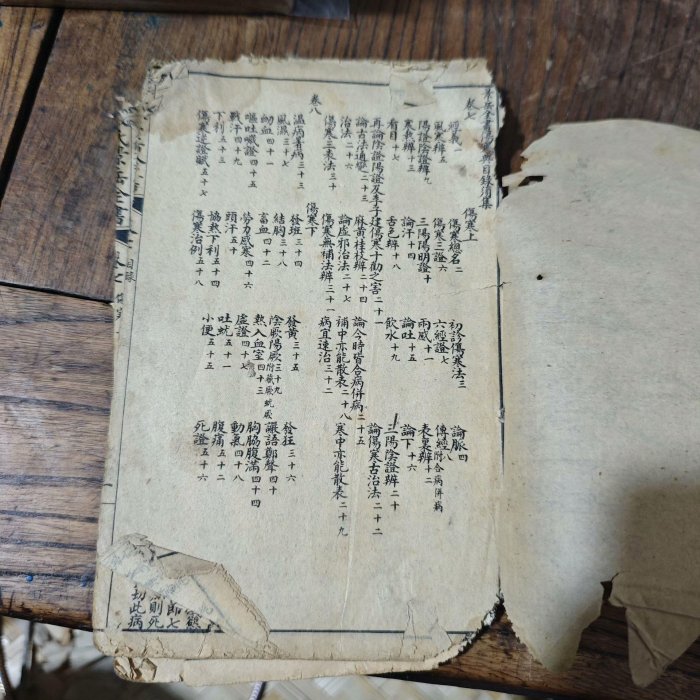 岳全書傷寒典目錄須集
卷七 傷寒上
經義一 傷寒總名二 初診傷寒法三 論脈四
風寒辨五 傷寒三證六 六經證七 傳經八附合病併病
陽證陰證辨九 三陽陽明證十 兩感十一 表裏辨十二
寒熱辨十三 論汗十四 論吐十五 論下十六
看目十七 舌色辨十八 飲水十九 三陽陰證辨二十
再論陰證陽證及李子建傷寒十勸之害二十一 論傷寒古治法二十二
論古法通變二十三 麻黃桂枝辨二十四 論今時皆合病併病二十五
治法二十六 論虛邪治法二十七 補中亦能散表二十八 寒中亦能散表二十九
傷寒三表法三十 傷寒無補法辨三十一 病宜速治三十二
卷八 傷寒下
溫病暑病三十三 發斑三十四 發黃三十五 發狂三十六
風濕三十七 結胸三十八 陰厥陽厥三十九附臟厥蚘厥 讝語鄭聲四十
衂血四十一 畜血四十二 熱入血室四十三 胸脇腹滿四十四
嘔吐噦證四十五 勞力感寒四十六 虛證四十七 動氣四十八
戰汗四十九 頭汗五十 吐蚘五十一 腹痛五十二
下利五十三 協熱下利五十四 小便五十五 死證五十六
傷寒逆證賦五十七 傷寒治例五十八
岳全書 目錄
七
則死
劫此病